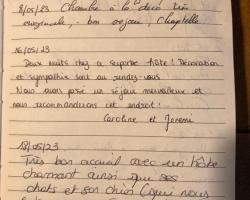 8/05/23 Chambre à la déco très
originale, bon séjour, Chapelle
16/05/23
Deux nuits chez ce superbe hôte! Décoration
et sympathie sont au rendez-vous.
Nous avons passé un séjour merveilleux et
nous recommandons cet endroit!
Caroline et Jeremi
18/05/23
Très bon accueil avec un hôte
charmant ainsi que ses
chats et son chien (qui nous